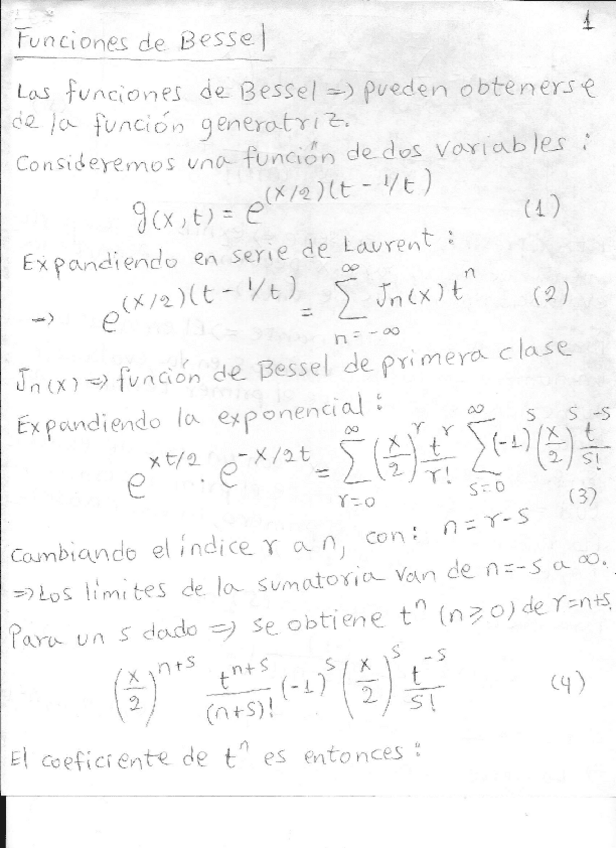 1
Funciones de Bessel
Las funciones de Bessel => pueden obtenerse
de la función generatriz.
Consideremos una función de dos variables:
g(x,t) = e^{(x/2)(t - 1/t)} (1)
Expandiendo en serie de Laurent:
-> e^{(x/2)(t - 1/t)} = \sum_{n=-∞}^{∞} J_n(x) t^n (2)
J_n(x) => función de Bessel de primera clase
Expandiendo la exponencial:
e^{xt/2} · e^{-x/2t} = \sum_{r=0}^{∞} (x/2)^r t^r/r! \sum_{s=0}^{∞} (-1)^s (x/2)^s t^{-s}/s! (3)
Cambiando el índice r a n, con: n = r-s
=> Los límites de la sumatoria van de n=-s a ∞.
Para un s dado => se obtiene t^n (n≥0) de r=n+s.
(x/2)^{n+s} t^{n+s}/(n+s)! (-1)^s (x/2)^s t^{-s}/s! (4)
El coeficiente de t^n es entonces: